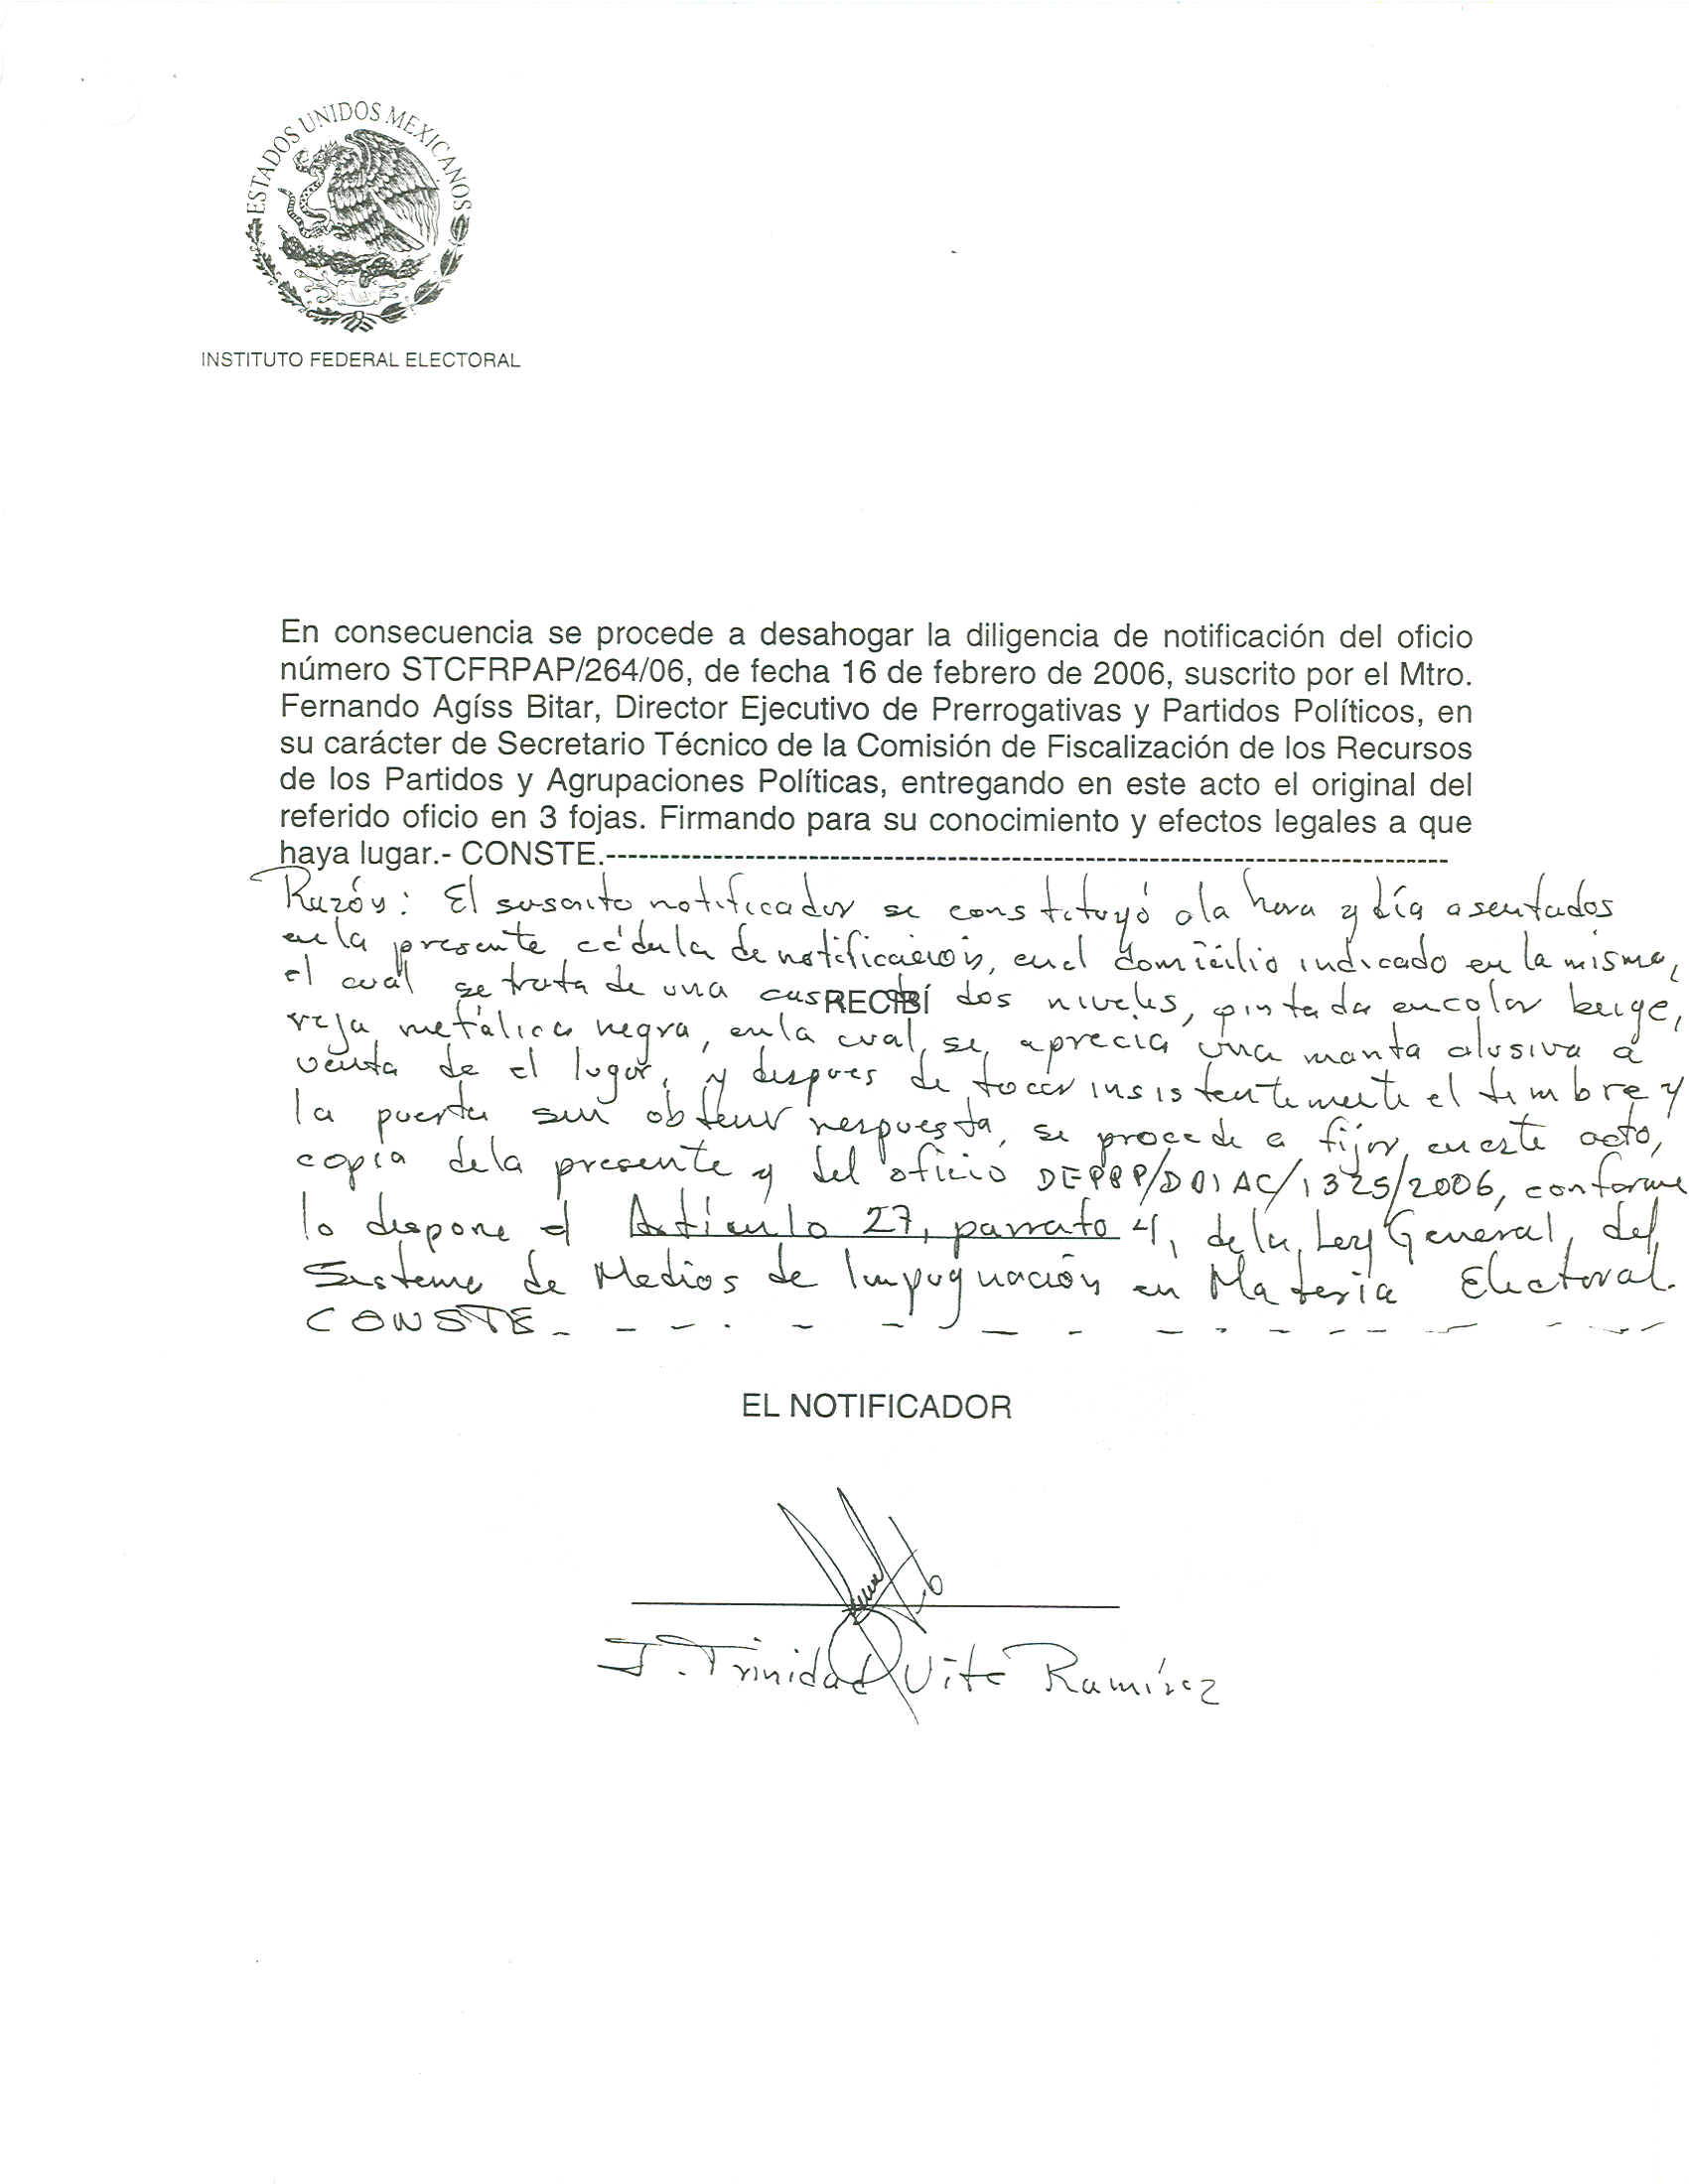 ESTADOS UNIDOS MEXICANOS
INSTITUTO FEDERAL ELECTORAL
En consecuencia se procede a desahogar la diligencia de notificación del oficio
número STCFRPAP/264/06, de fecha 16 de febrero de 2006, suscrito por el Mtro.
Fernando Agíss Bitar, Director Ejecutivo de Prerrogativas y Partidos Políticos, en
su carácter de Secretario Técnico de la Comisión de Fiscalización de los Recursos
de los Partidos y Agrupaciones Políticas, entregando en este acto el original del
referido oficio en 3 fojas. Firmando para su conocimiento y efectos legales a que
haya lugar.- CONSTE.------------------------------------------------------------------------------
Razón: El suscrito notificador se constituyó a la hora y día asentados
en la presente cédula de notificación, en el domicilio indicado en la misma,
el cual se trata de una casa de dos niveles, pintada en color beige,
RECIBÍ
reja metálica negra, en la cual se aprecia una manta alusiva a
venta de el lugar, y despues de tocar insistentemente el timbre y
la puerta sin obtener respuesta, se procede a fijar en este acto,
copia de la presente y del oficio DEPPP/DAIAC/1325/2006, conforme
lo dispone el Artículo 27, parrafo 4, de la Ley General del
Sistema de Medios de Impugnación en Materia Electoral.
CONSTE - - - - - - - - - - - - - - - -
EL NOTIFICADOR
J. Trinidad Vite Ramírez